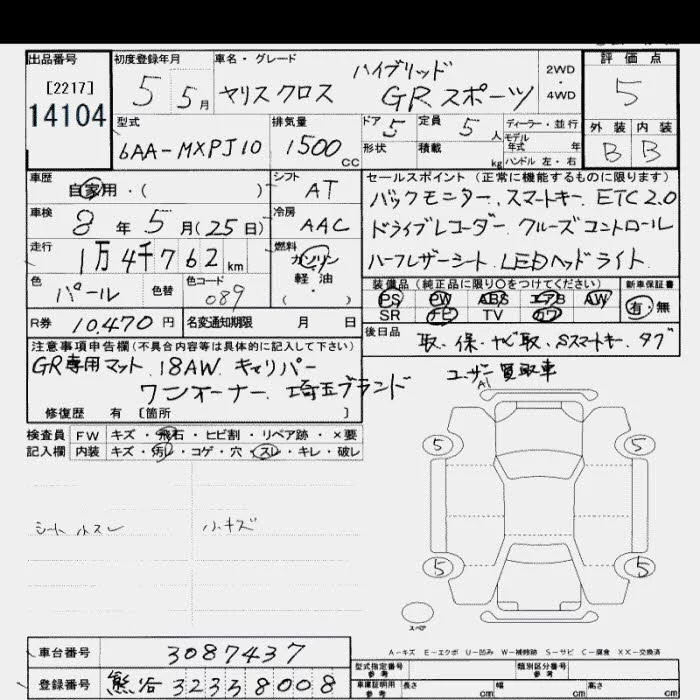 出品番号 初度登録年月 車名・グレード 評価点
[2217]
14104
5 5月 ヤリスクロス ハイブリッド GRスポーツ 2WD ・ 4WD 5
型式 排気量 ドア 5 定員 5人 ディーラー・並行 外装 内装
6AA-MXPJ10 1500cc 形状 積載 kg モデル年式 年 ハンドル 左・右 B B
車歴 シフト セールスポイント(正常に機能するものに限ります)
自家用・( ) AT バックモニター、スマートキー、ETC2.0
車検 冷房 ドライブレコーダー、クルーズコントロール
8年5月(25日) AAC ハーフレザーシート、LEDヘッドライト
走行 燃料
1万4千762km ガソリン・軽油・( )
色 色替 色コード 装備品(純正品に限り○をつけてください) 新車保証書
パール 089 PS PW ABS エアB AW 有・無
SR ナビ TV カワ
R券 10,470円 名変通知期限 月 日 後日品 取、保、ナビ取、Sスマートキー、タグ
注意事項申告欄(不具合内容等は具体的に記入して下さい)
GR専用マット、18AW、キャリパー
ワンオーナー、埼玉ブランド
ユーザー買取車
A1
修復歴 有 [箇所 ]
検査員 FW キズ・飛石・ヒビ割・リペア跡・×要
記入欄 内装 キズ・汚れ・コゲ・穴・スレ・キレ・破レ
シート小スレ 小キズ
5 5
5 5
スペア
A-キズ E-エクボ U-凹み W-補修跡 S-サビ C-腐食 XX-交換済
車台番号 3087437 型式指定番号 参考 類別区分番号 参考
登録番号 熊谷 323 3 8008 車庫証明用 参考 長さ cm 幅 cm 高さ cm